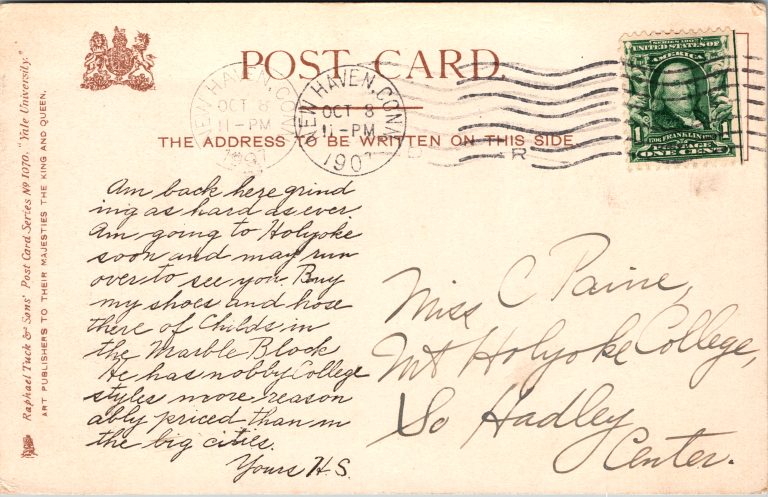 POST CARD.
THE ADDRESS TO BE WRITTEN ON THIS SIDE
NEW HAVEN, CONN
OCT 8
11-PM
1907
NEW HAVEN, CONN
OCT 8
11-PM
1907
SERIES 1902
UNITED STATES OF
AMERICA
FRANKLIN
1 POSTAGE 1
ONE CENT
Raphael Tuck & Sons' Post Card Series No 1070. "Yale University."
ART PUBLISHERS TO THEIR MAJESTIES THE KING AND QUEEN.
Am back here grind
ing as hard as ever
Am going to Holyoke
soon and may run
over to see you. Buy
my shoes and hose
there of Childs in
the Marble Block
He has nobby College
styles more reason
ably priced than in
the big cities.
Yours H.S.
Miss C Paine,
Mt Holyoke College,
So Hadley
Center.